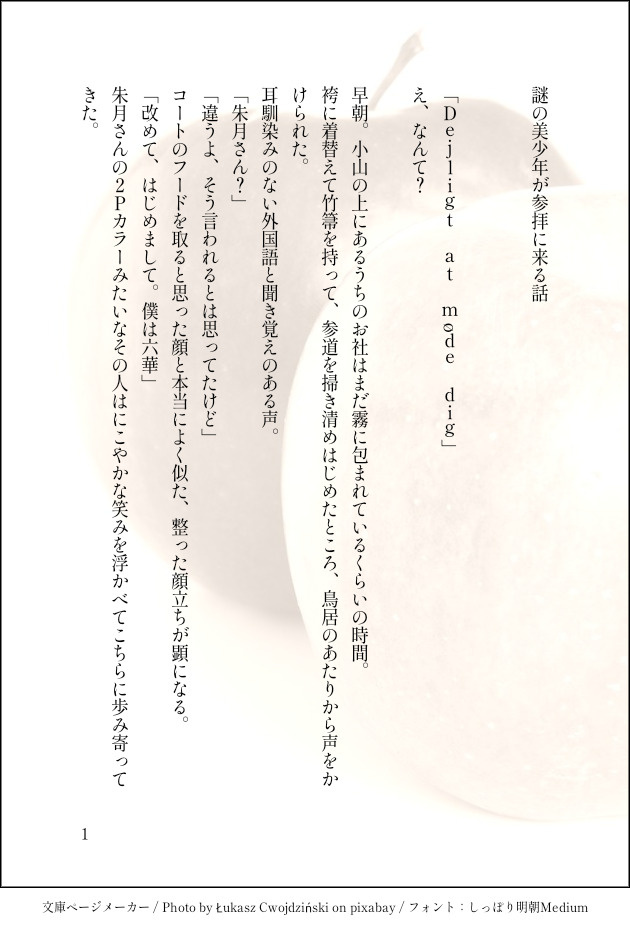 謎の美少年が参拝に来る話
「Dejligt at møde dig」
え、なんて？
早朝。小山の上にあるうちのお社はまだ霧に包まれているくらいの時間。
袴に着替えて竹箒を持って、参道を掃き清めはじめたところ、鳥居のあたりから声をか
けられた。
耳馴染みのない外国語と聞き覚えのある声。
「朱月さん？」
「違うよ、そう言われるとは思ってたけど」
コートのフードを取ると思った顔と本当によく似た、整った顔立ちが顕になる。
「改めて、はじめまして。僕は六華」
朱月さんの２Ｐカラーみたいなその人はにこやかな笑みを浮かべてこちらに歩み寄って
きた。
1
文庫ページメーカー / Photo by Łukasz Cwojdziński on pixabay / フォント：しっぽり明朝Medium